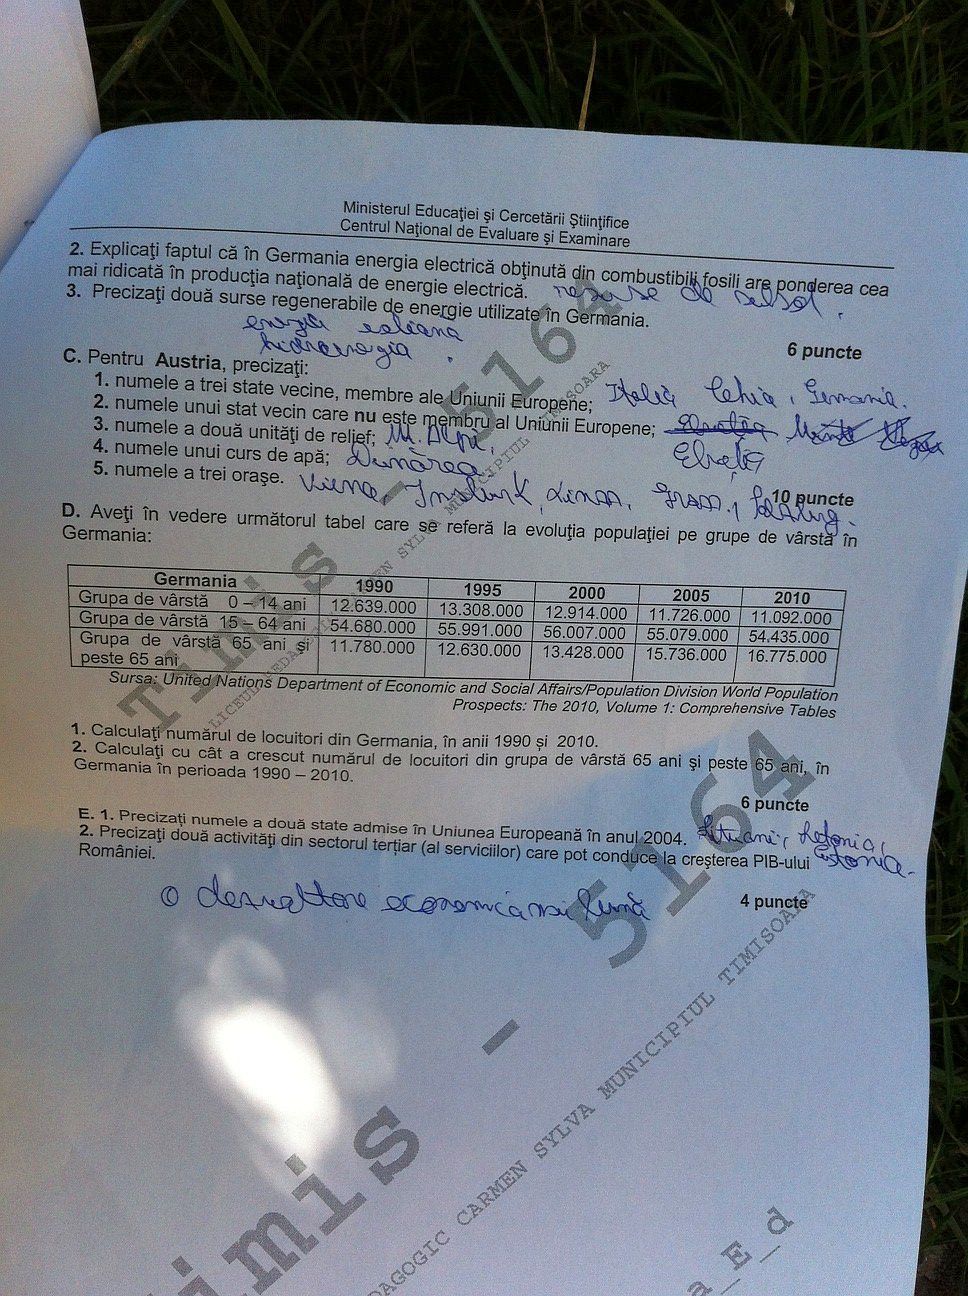 Ministerul Educaţiei şi Cercetării Ştiinţifice
Centrul Naţional de Evaluare şi Examinare
2. Explicaţi faptul că în Germania energia electrică obţinută din combustibili fosili are ponderea cea
mai ridicată în producţia naţională de energie electrică. resurse de subsol.
3. Precizaţi două surse regenerabile de energie utilizate în Germania.
energia eoliana
hidroenergia.
6 puncte
C. Pentru Austria, precizaţi:
1. numele a trei state vecine, membre ale Uniunii Europene; Italia Cehia, Germania.
2. numele unui stat vecin care nu este membru al Uniunii Europene; Elveția
3. numele a două unităţi de relief; M. Alpi,
Elveția
4. numele unui curs de apă; Dunărea
5. numele a trei oraşe. Viena,
10 puncte
D. Aveţi în vedere următorul tabel care se referă la evoluţia populaţiei pe grupe de vârstă în
Germania:
Germania 1990 1995 2000 2005 2010
Grupa de vârstă 0 – 14 ani 12.639.000 13.308.000 12.914.000 11.726.000 11.092.000
Grupa de vârstă 15 – 64 ani 54.680.000 55.991.000 56.007.000 55.079.000 54.435.000
Grupa de vârstă 65 ani şi 11.780.000 12.630.000 13.428.000 15.736.000 16.775.000
peste 65 ani
Sursa: United Nations Department of Economic and Social Affairs/Population Division World Population
Prospects: The 2010, Volume 1: Comprehensive Tables
1. Calculaţi numărul de locuitori din Germania, în anii 1990 şi 2010.
2. Calculaţi cu cât a crescut numărul de locuitori din grupa de vârstă 65 ani şi peste 65 ani, în
Germania în perioada 1990 – 2010.
6 puncte
E. 1. Precizaţi numele a două state admise în Uniunea Europeană în anul 2004. Letonia,
2. Precizaţi două activităţi din sectorul terţiar (al serviciilor) care pot conduce la creşterea PIB-ului Estonia.
României.
4 puncte
o dezvoltare economica mai bună
Timis - 5164
LICEUL PEDAGOGIC CARMEN SYLVA MUNICIPIUL TIMISOARA
Timis - 5164
PEDAGOGIC CARMEN SYLVA MUNICIPIUL TIMISOARA
a_E_d